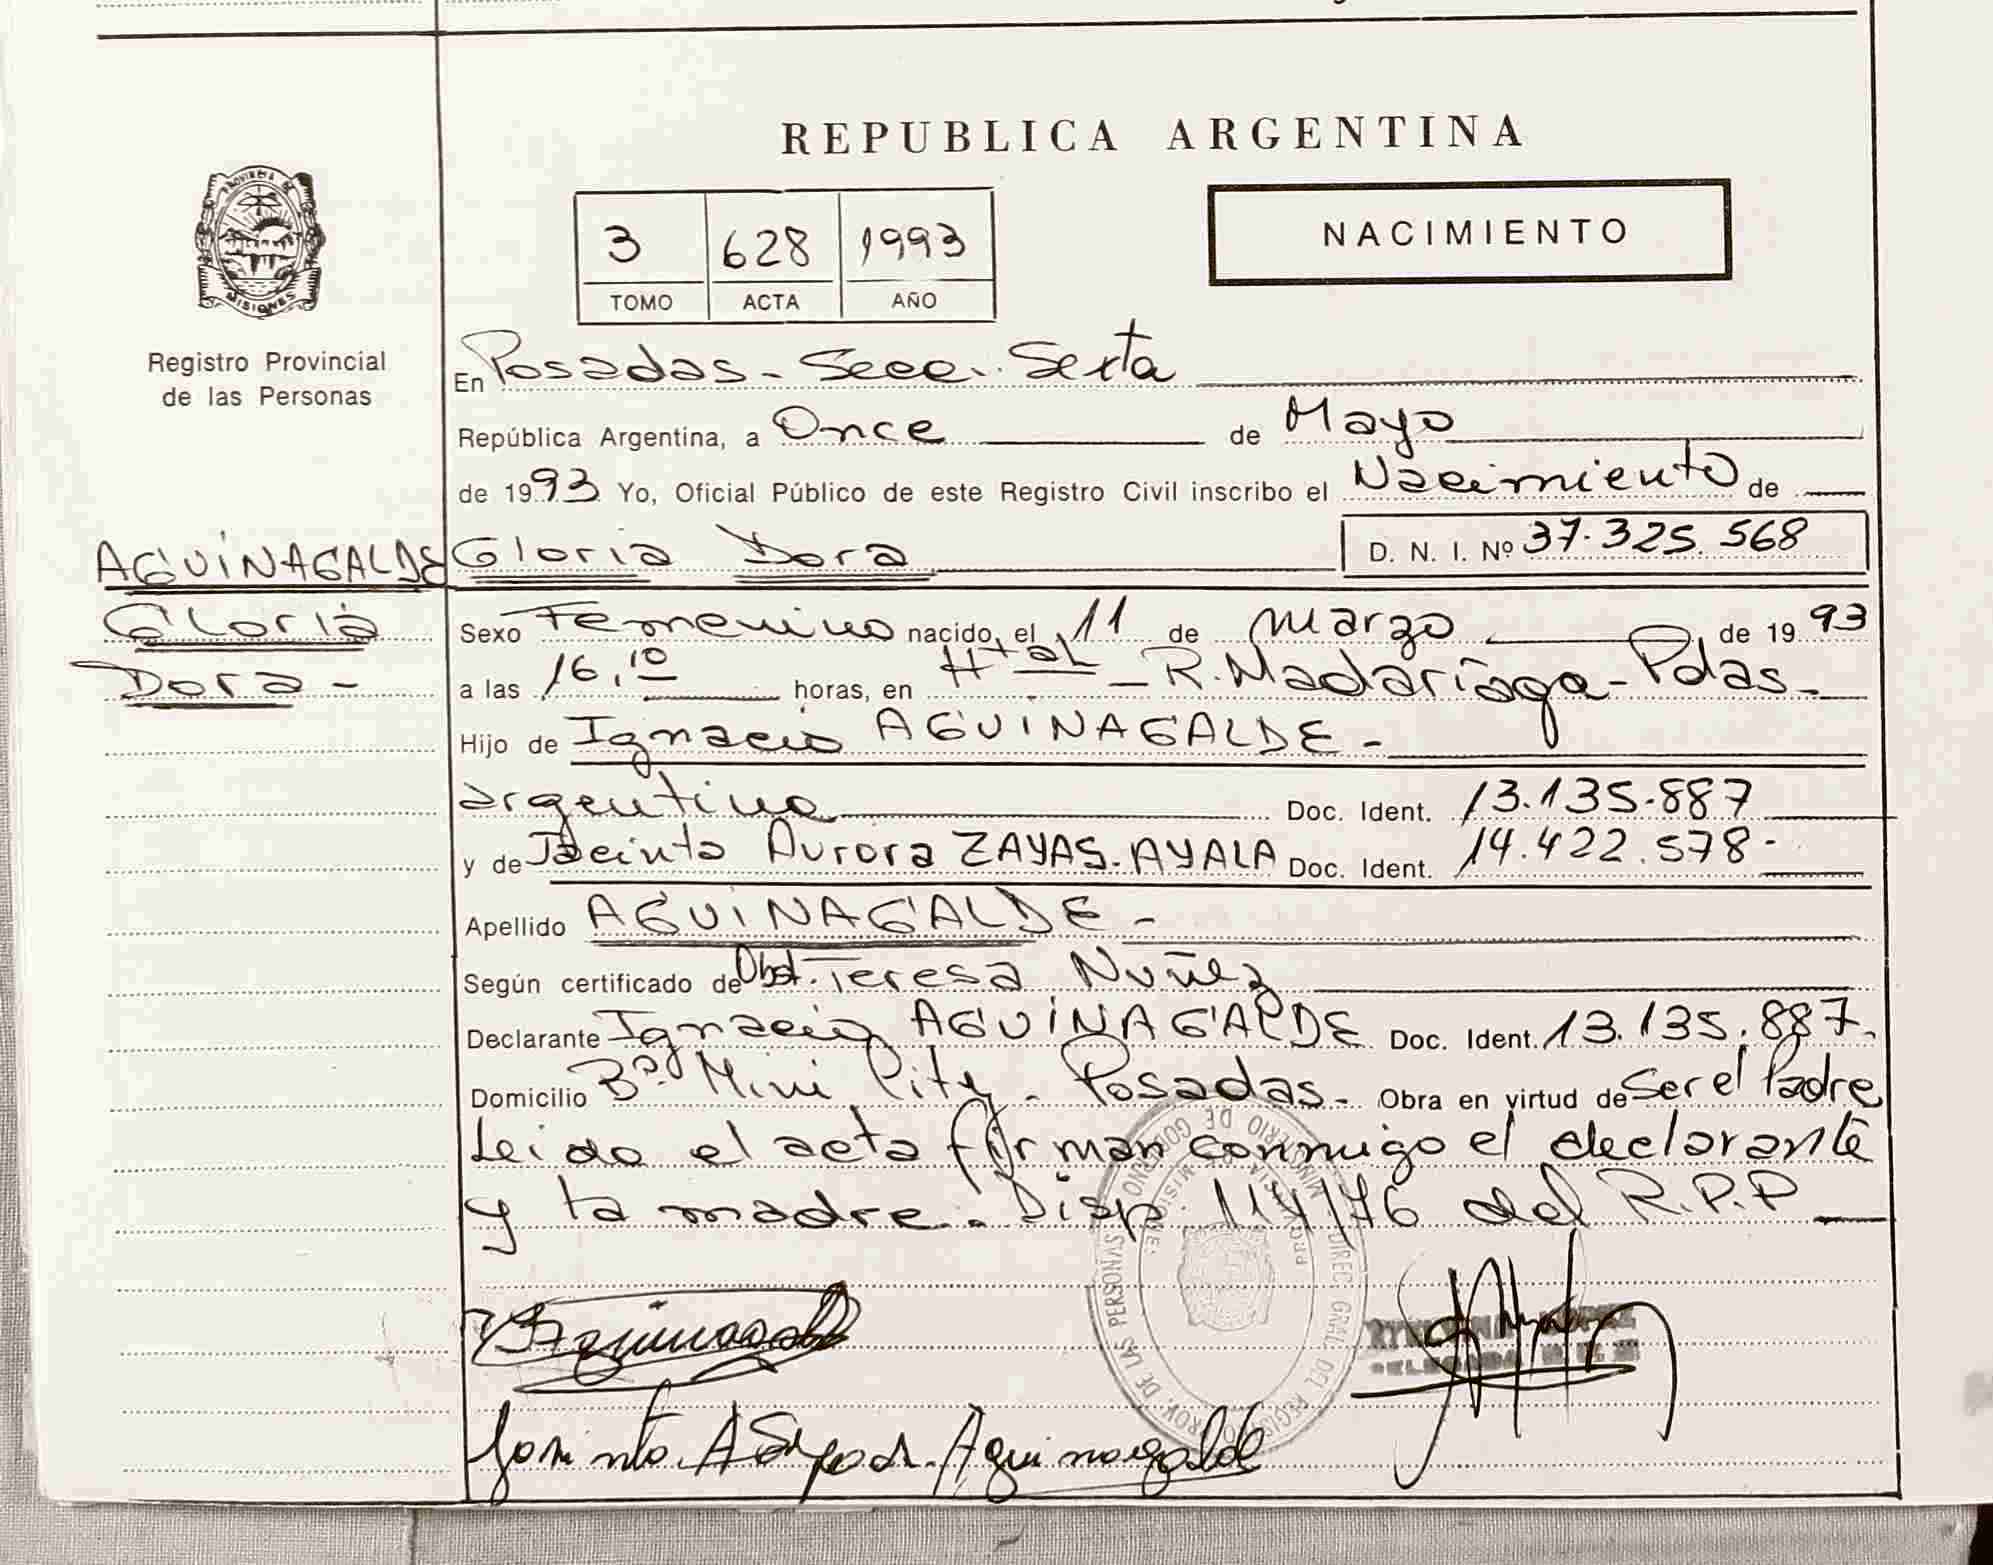 REPUBLICA ARGENTINA
PROVINCIA DE
MISIONES
Registro Provincial
de las Personas
3 628 1993
TOMO ACTA AÑO
NACIMIENTO
En Posadas - Secc. Sexta
República Argentina, a Once de Mayo
de 1993 Yo, Oficial Público de este Registro Civil inscribo el Nacimiento de
AGUINAGALDE Gloria Dora D. N. I. Nº 37.325.568
Gloria Sexo Femenino nacido, el 11 de marzo de 1993
Dora - a las 16,10 horas, en Htal - R. Madariaga - Pdas.
Hijo de Ignacio AGUINAGALDE -
argentino Doc. Ident. 13.135.887
y de Jacinta Aurora ZAYAS-AYALA Doc. Ident. 14.422.578-
Apellido AGUINAGALDE -
Según certificado de Obst. Teresa Nuñez
Declarante Ignacio AGUINAGALDE Doc. Ident. 13.135.887.
Domicilio Bº. Mini City - Posadas - Obra en virtud de Ser el Padre
Leido el acta firman conmigo el declarante
y la madre. Disp. 114/76 del R.P.P
MINISTERIO DE GOBIERNO
DIREC. GRAL. DEL REGISTRO PROV. DE LAS PERSONAS
Aguinagalde